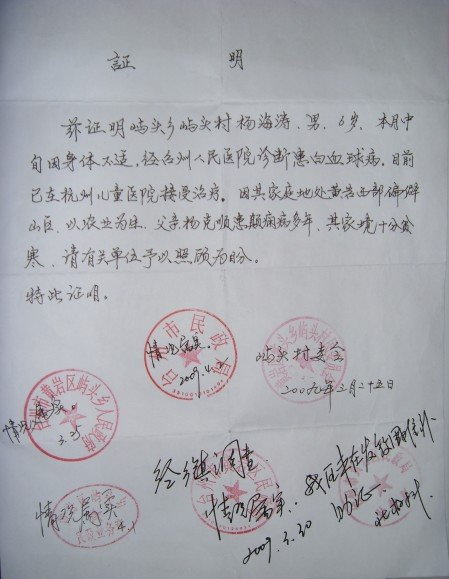 证 明
兹证明屿头乡屿头村杨海涛，男，6岁，本月中
旬因身体不适，经台州人民医院诊断患白血球病，目前
已在杭州儿童医院接受治疗。因其家庭地处黄岩西部偏僻
山区，以农业为生，父亲杨克顺患颠痫病多年，其家境十分贫
寒，请有关单位予以照顾为盼。
特此证明。
屿头村委会
二00九年三月二十五日
情况属实。
2009.4.
市民政局
情况属实。
3.25
黄岩区屿头乡人民政府
情况属实
4.1
经乡镇调查
情况属实。
2009.3.30